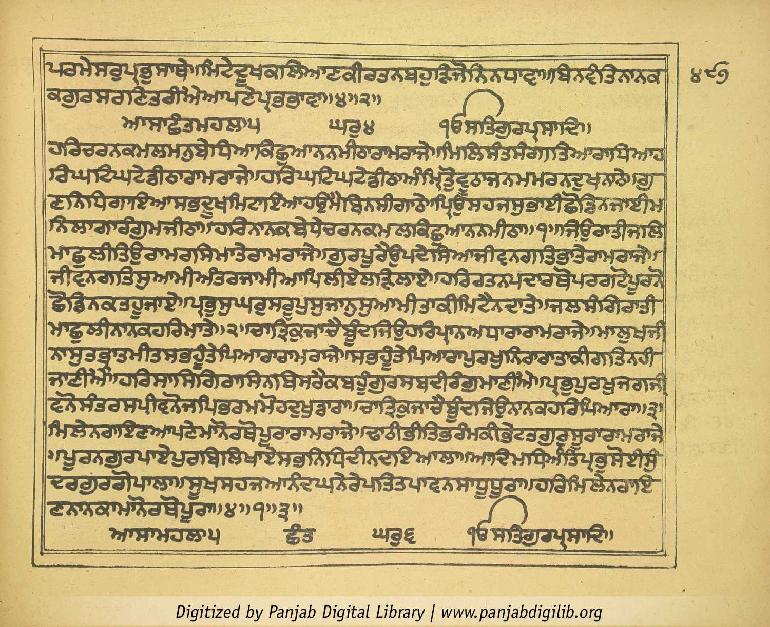 ੪੯੭
ਪਰਮੇਸਰੁਪ੍ਰਭੁਜਾਥੇ॥ਮਿਟੇਦੂਖਕਲਿਆਣਕੀਰਤਨਬਹੁੜਿਜੋਨਿਨਪਾਵਾ॥ਬਿਨਵੰਤਿਨਾਨਕ
ਕਗੁਰਸਰਣਿਤਰੀਐਆਪਣੇਪ੍ਰਭਭਾਵਾ॥੪॥੨॥
ਆਸਾਛੰਤਮਹਲਾ੫ ਘਰੁ੪ ੴਸਤਿਗੁਰਪ੍ਰਸਾਦਿ॥
ਹਰਿਚਰਨਕਮਲਮਨੁਬੇਧਿਆਕਿਛੁਆਨਨਮੀਠਾਰਾਮਰਾਜੇ॥ਮਿਲਿਸੰਤਸੰਗਤਿਆਰਾਧਿਆਹ
ਰਿਘਟਿਘਟੇਡੀਠਾਰਾਮਰਾਜੇ॥ਹਰਿਘਟਿਘਟੇਡੀਠਾਅੰਮ੍ਰਿਤੁਵੂਠਾਜਨਮਮਰਨਦੁਖਨਠੇ॥ਗੁ
ਣਨਿਧਿਗਾਇਆਸਭਦੂਖਮਿਟਾਇਆਹਉਮੈਬਿਨਸੀਗਾਠੇ॥ਪ੍ਰਿਉਸਹਜਸੁਭਾਈਛੋਡਿਨਜਾਈਮ
ਨਿਲਾਗਾਰੰਗੁਮਜੀਠਾ॥ਹਰਿਨਾਨਕਬੇਧੇਚਰਨਕਮਲਕਿਛੁਆਨਨਮੀਠਾ॥੧॥ਜਿਉਰਾਤੀਜਲਿ
ਮਾਛੁਲੀਤਿਉਰਾਮਰਸਿਮਾਤੇਰਾਮਰਾਜੇ॥ਗੁਰਪੂਰੈਉਪਦੇਸਿਆਜੀਵਨਗਤਿਭਾਤੇਰਾਮਰਾਜੇ॥
ਜੀਵਨਗਤਿਸੁਆਮੀਅੰਤਰਜਾਮੀਆਪਿਲੀਏਲੜਿਲਾਏ॥ਹਰਿਰਤਨਪਦਾਰਥੋਪਰਗਟੋਪੂਰਨੋ
ਛੋਡਿਨਕਤਹੂਜਾਏ॥ਪ੍ਰਭੁਸੁਘਰੁਸਰੂਪੁਸੁਜਾਨੁਸੁਆਮੀਤਾਕੀਮਿਟੈਨਦਾਤੇ॥ਜਲਸੰਗਿਰਾਤੀ
ਮਾਛੁਲੀਨਾਨਕਹਰਿਮਾਤੇ॥੨॥ਚਾਤ੍ਰਿਕੁਜਾਚੈਬੂੰਦਜਿਉਹਰਿਪ੍ਰਾਨਅਧਾਰਾਰਾਮਰਾਜੇ॥ਮਾਲੁਖਜੀ
ਨਾਸੁਤਭ੍ਰਾਤਮੀਤਸਭਹੂੰਤੇਪਿਆਰਾਰਾਮਰਾਜੇ॥ਸਭਹੂੰਤੇਪਿਆਰਾਪੁਰਖੁਨਿਰਾਰਾਤਾਕੀਗਤਿਨਹੀ
ਜਾਣੀਐ॥ਹਰਿਸਾਸਿਗਿਰਾਸਿਨਬਿਸਰੈਕਬਹੂੰਗੁਰਸਬਦੀਰੰਗੁਮਾਣੀਐ॥ਪ੍ਰਭੁਪੁਰਖੁਜਗਜੀ
ਵਨੋਸੰਤਰਸਪੀਵਨੋਜਪਿਭਰਮਮੋਹਦੁਖਡਾਰਾ॥ਚਾਤ੍ਰਿਕੁਜਾਚੈਬੂੰਦਜਿਉਨਾਨਕਹਰਿਪਿਆਰਾ॥੩॥
ਮਿਲੇਨਰਾਇਣਆਪਣੇਮਾਨੋਰਥੋਪੂਰਾਰਾਮਰਾਜੇ॥ਢਾਠੀਭੀਤਿਭਰੰਮਕੀਭੇਟਤਗੁਰੁਸੂਰਾਰਾਮਰਾਜੇ
॥ਪੂਰਨਗੁਰਪਾਏਪੁਰਬਿਲਿਖਾਏਸਭਨਿਧਿਦੀਨਦਇਆਲਾ॥ਆਦਿਮਧਿਅੰਤਿਪ੍ਰਭੁਸੋਈਸੁੰ
ਦਰਗੁਰਗੋਪਾਲਾ॥ਸੂਖਸਹਜਆਨੰਦਘਨੇਰੇਪਤਿਤਪਾਵਨਸਾਧੂਧੂਰਾ॥ਹਰਿਮਿਲੇਨਰਾਇ
ਣਨਾਨਕਾਮਾਨੋਰਥੋਪੂਰਾ॥੪॥੧॥੩॥
ਆਸਾਮਹਲਾ੫ ਛੰਤ ਘਰੁ੬ ੴਸਤਿਗੁਰਪ੍ਰਸਾਦਿ॥
Digitized by Panjab Digital Library | www.panjabdigilib.org